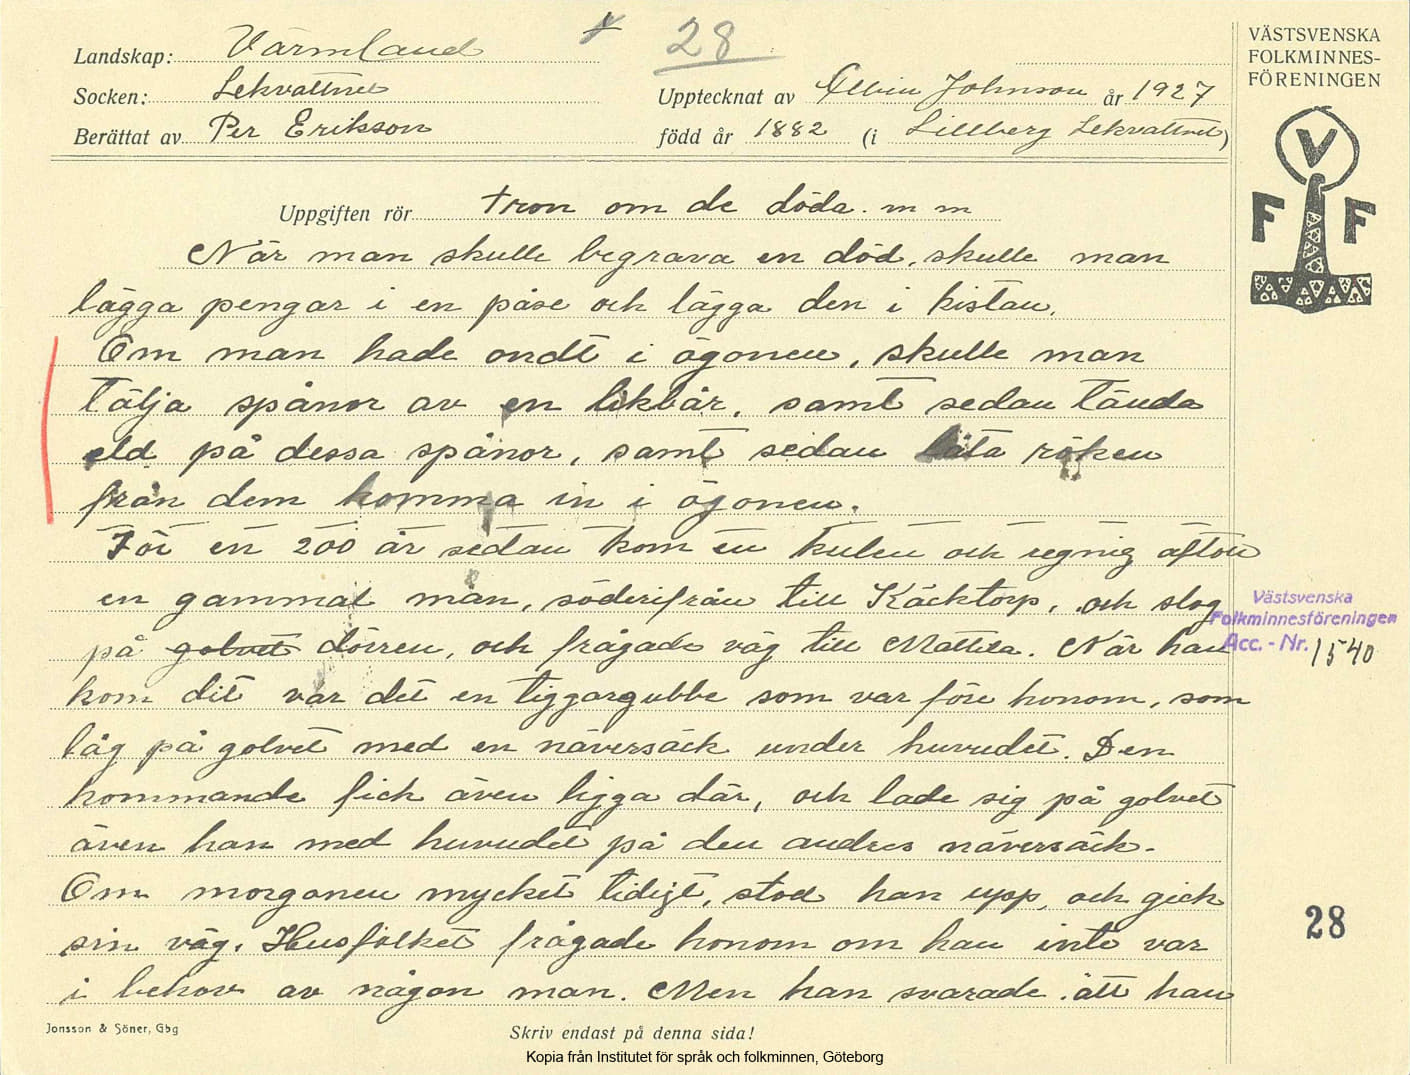 Landskap: Värmland
28
Socken: Lekvattnet
Upptecknat av Elvin Johnson år 1927
Berättat av Per Eriksson
född år 1882 (i Lillberg Lekvattnet)
VÄSTSVENSKA
FOLKMINNES-
FÖRENINGEN
V
F F
Uppgiften rör tron om de döda. m m
När man skulle begrava en död, skulle man
lägga pengar i en påse och lägga den i kistan.
Om man hade ondt i ögonen, skulle man
tälja spånor av en likbår, samt sedan tända
eld på dessa spånor, samt sedan låta röken
från dem komma in i ögonen.
För en 200 år sedan kom en kulen och regnig afton
en gammal man, söderifrån till Käcktorp, och slog
på golvet dörren, och frågade väg till Mattila. När han
kom dit var det en tiggargubbe som var före honom, som
låg på golvet med en näversäck under huvudet. Den
kommande fick även ligga där, och lade sig på golvet
även han med huvudet på den andres näversäck.
Om morgonen mycket tidigt, stod han upp, och gick
sin väg. Husfolket frågade honom om han inte var
i behov av någon man. Men han svarade. att han
Västsvenska
Folkminnesföreningen
Acc. - Nr. 1540
28
Jonsson & Söner, Gbg
Skriv endast på denna sida!
Kopia från Institutet för språk och folkminnen, Göteborg